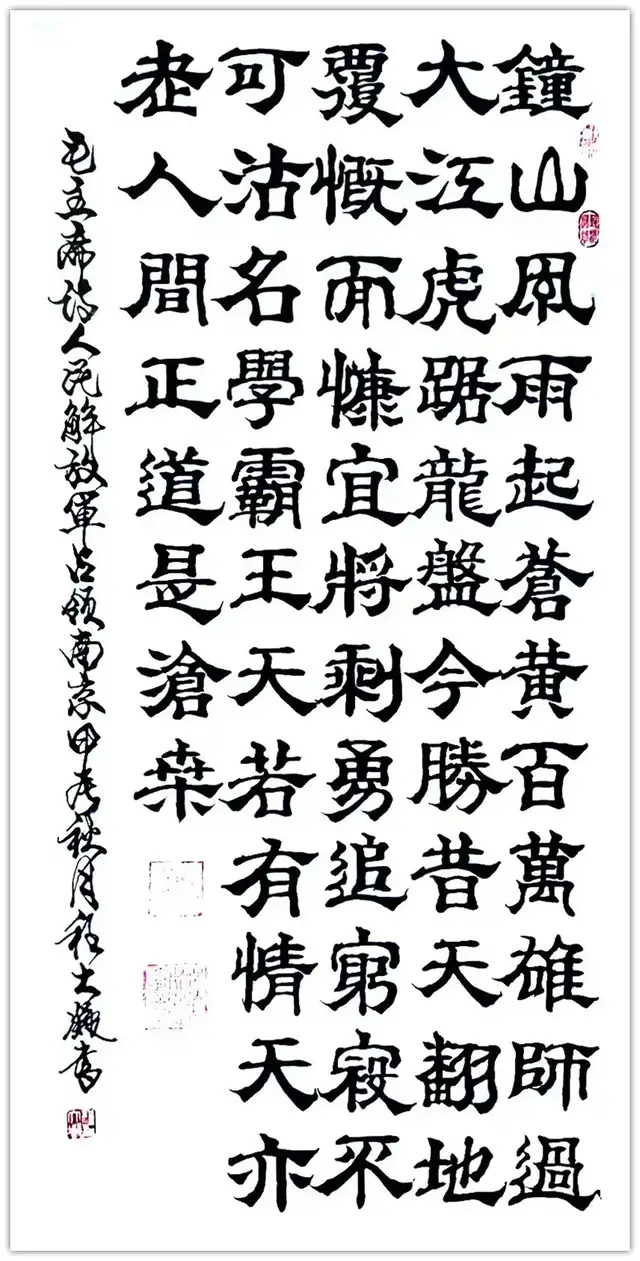 鐘山風雨起蒼黃百萬雄師過
大江虎踞龍盤今勝昔天翻地
覆慨而慷宜將剩勇追窮寇不
可沽名學霸王天若有情天亦
老人間正道是滄桑
毛主席詩人民解放軍占領南京甲秋月程書